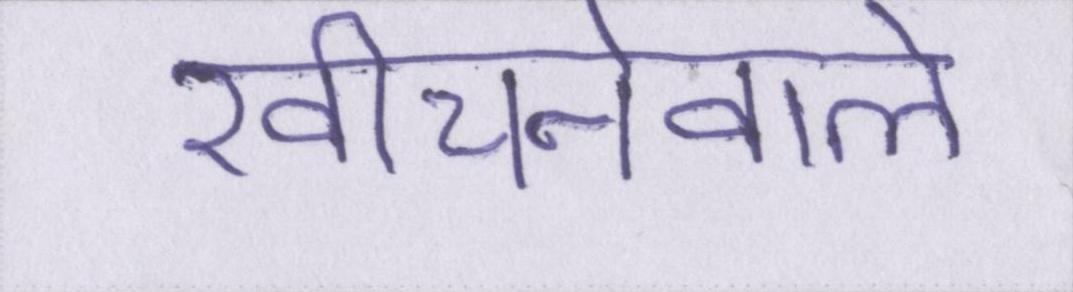 खीचनेवाले